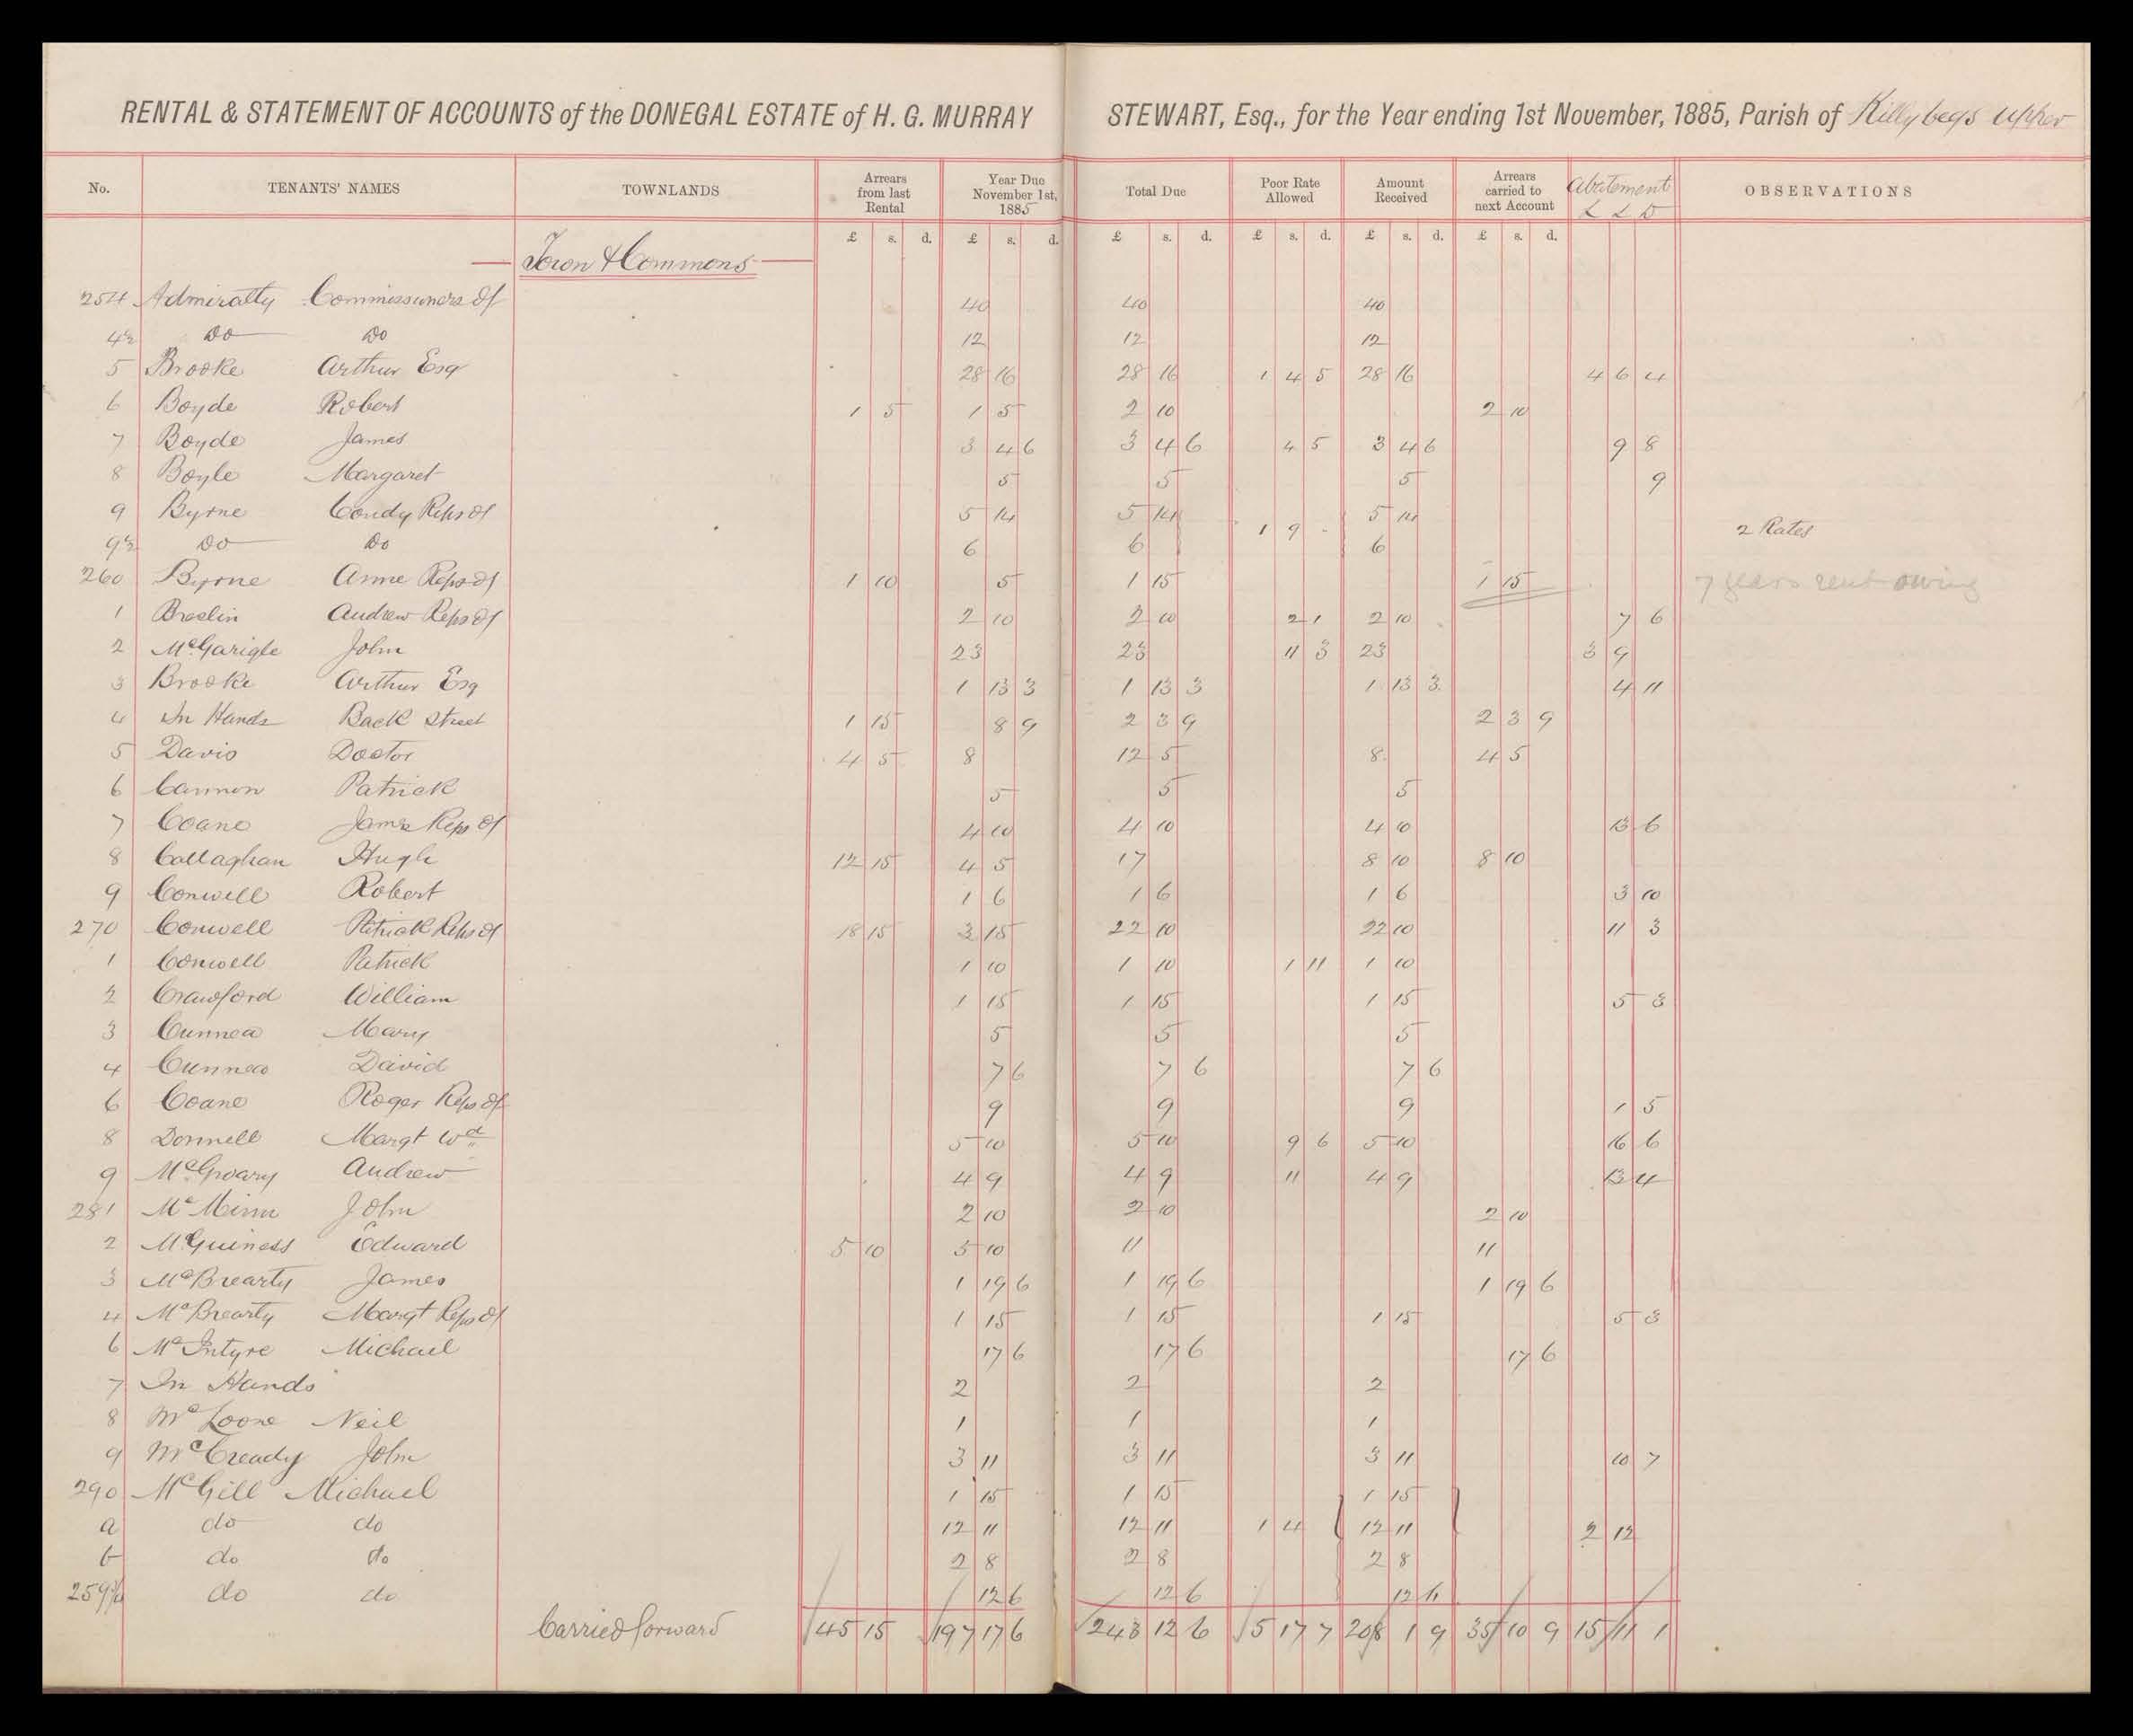 RENTAL & STATEMENT OF ACCOUNTS of the DONEGAL ESTATE of H. G. MURRAY STEWART, Esq., for the Year ending 1st November, 1885, Parish of Killybegs Upper
No. TENANTS' NAMES TOWNLANDS Arrears from last Rental Year Due November 1st, 1885 Total Due Poor Rate Allowed Amount Received Arrears carried to next Account Abatement OBSERVATIONS
£ s. d. £ s. d. £ s. d. £ s. d. £ s. d. £ s. d. £ s D
Town & Commons
254 Admiralty Commissioners Of 40 40 40
4½ Do Do 12 12 12
5 Brooke Arthur Esq 28 16 28 16 1 4 5 28 16 4 6 4
6 Boyde Robert 1 5 1 5 2 10 2 10
7 Boyde James 3 4 6 3 4 6 4 5 3 4 6 9 8
8 Boyle Margaret 5 5 5 9
9 Byrne Condy Reps of 5 14 5 14 1 9 - 5 14 2 Rates
9½ Do Do 6 6 6
260 Byrne Anne Reps of 1 10 5 1 15 1 15 7 years rent owing
1 Breslin Andrew Reps of 2 10 2 10 2 1 2 10 7 6
2 McGarigle John 23 23 11 3 23 3 9
3 Brooke Arthur Esq 1 13 3 1 13 3 1 13 3 4 11
4 In Hands Back Street 1 15 8 9 2 3 9 2 3 9
5 Davis Doctor 4 5 8 12 5 8 4 5
6 Cannon Patrick 5 5 5
7 Coane James Reps of 4 10 4 10 4 10 13 6
8 Callaghan Hugh 12 15 4 5 17 8 10 8 10
9 Conwell Robert 1 6 1 6 1 6 3 10
270 Conwell Patrick Reps of 18 15 3 15 22 10 22 10 11 3
1 Conwell Patrick 1 10 1 10 1 11 1 10
2 Crawford William 1 15 1 15 1 15 5 3
3 Cunnea Mary 5 5 5
4 Cunnea David 7 6 7 6 7 6
6 Coane Roger Reps of 9 9 9 1 5
8 Donnell Margt Wd 5 10 5 10 9 6 5 10 16 6
9 McGroary Andrew 4 9 4 9 11 4 9 13 4
281 McMinn John 2 10 2 10 2 10
2 McGuiness Edward 5 10 5 10 11 11
3 McBrearty James 1 19 6 1 19 6 1 19 6
4 McBrearty Margt Reps of 1 15 1 15 1 15 5 3
6 McIntyre Michael 17 6 17 6 17 6
7 In Hands 2 2 2
8 McLoone Neil 1 1 1
9 McCready John 3 11 3 11 3 11 10 7
290 McGill Michael 1 15 1 15 1 15
a do do 12 11 12 11 1 4 12 11 2 12
b do do 2 8 2 8 2 8
do do 12 6 12 6 12 6
Carried forward 45 15 197 17 6 243 12 6 5 17 7 208 1 9 35 10 9 15 11 1